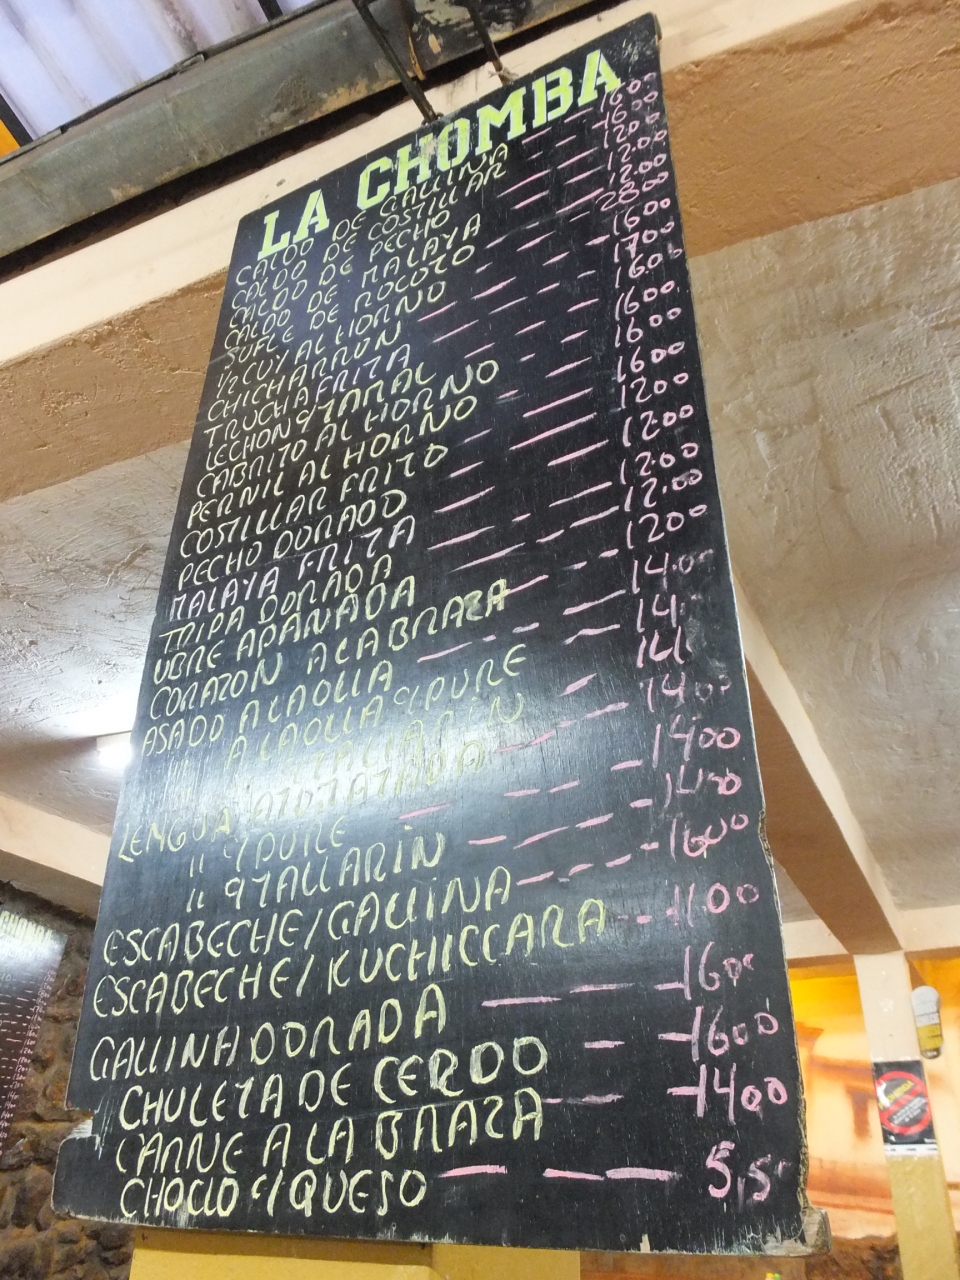 LA CHOMBA
CALDO DE GALLINA 16.00
CALDO DE COSTILLAR 16.00
CALDO DE PECHO 12.0
CALDO DE MALAYA 12.00
SUFLE DE ROCOTO 12.00
1/2 CUY AL HORNO 28.00
CHICHARRON 1600
TRUCHA FRITA 1700
LECHON c/TAMAL 16.0
CABRITO AL HORNO 1600
PERNIL AL HORNO 1600
COSTILLAR FRITO 1600
PECHO DORADO 1200
MALAYA FRITA 12.00
TRIPA DORADA 12.00
UBRE APANADA 12.00
CORAZON A LA BRAZA 1200
ASADO A LA OLLA 14.0
" A LA OLLA c/PURE 14
" c/TALLARIN 14
LENGUA ATOMATADA 14.00
" c/PURE 1400
" c/TALLARIN 1400
ESCABECHE/GALLINA 1600
ESCABECHE/KUCHICCARA 11.00
GALLINA DORADA 1600
CHULETA DE CERDO 1600
CARNE A LA BRAZA 1400
CHOCLO c/QUESO 5,5